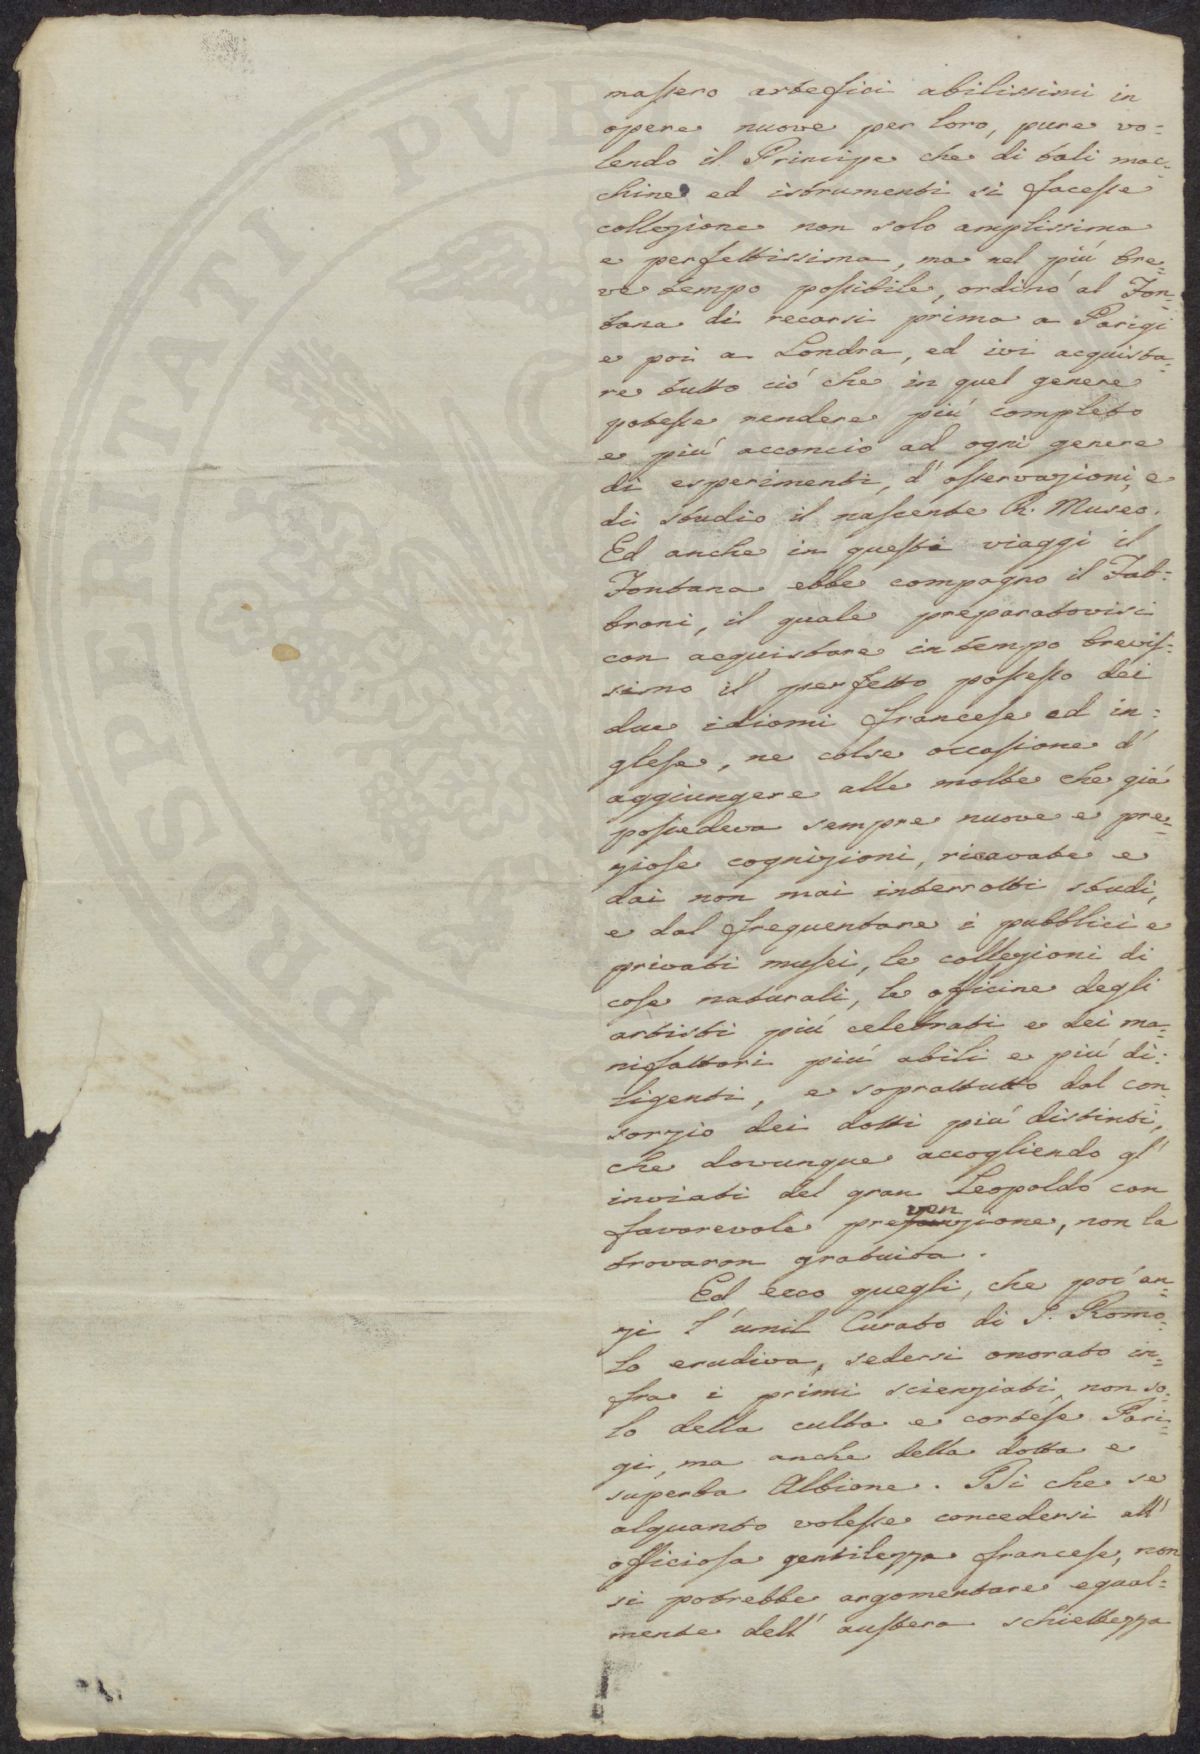 PROSPERITATI PVBLI
massero artefici abilissimi in
opere nuove per loro, pure vo=
lendo il Principe che di tali mac=
chine ed istrumenti si facesse
collezione non solo amplissima
e perfettissima, ma nel più bre=
ve tempo possibile, ordinò al Fon=
tana di recarsi prima a Parigi
e poi a Londra, ed ivi acquista=
re tutto ciò che in quel genere
potesse rendere più completo
e più acconcio ad ogni genere
di esperimenti, d'osservazioni, e
di studio il nascente R. Museo.
Ed anche in questi viaggi il
Fontana ebbe compagno il Fab=
broni, il quale preparatovisi
con acquistare in tempo brevis=
simo il perfetto possesso dei
due idiomi francese ed in=
glese, ne colse occasione d'
aggiungere alle molte che già
possedeva sempre nuove e pre=
ziose cognizioni, ricavate e
dai non mai interrotti studi,
e dal frequentare i pubblici e
privati musei, le collezioni di
cose naturali, le officine degli
artisti più celebrati e dei ma=
nifattori più abili e più di=
ligenti, e soprattutto dal con=
sorzio dei dotti più distinti,
che dovunque accogliendo gl'
inviati del gran Leopoldo con
favorevole prevenzione, non la
trovaron gratuita.
Ed ecco quegli, che poc'an=
zi l'umil Curato di S. Romo=
lo erudiva, sedersi onorato in=
fra i primi scienziati non so=
lo della culta e cortese Pari=
gi, ma anche della dotta e
superba Albione. Di che se
alquanto volesse concedersi all'
officiosa gentilezza francese, non
si potrebbe argomentare egual=
mente dell'austera schiettezza